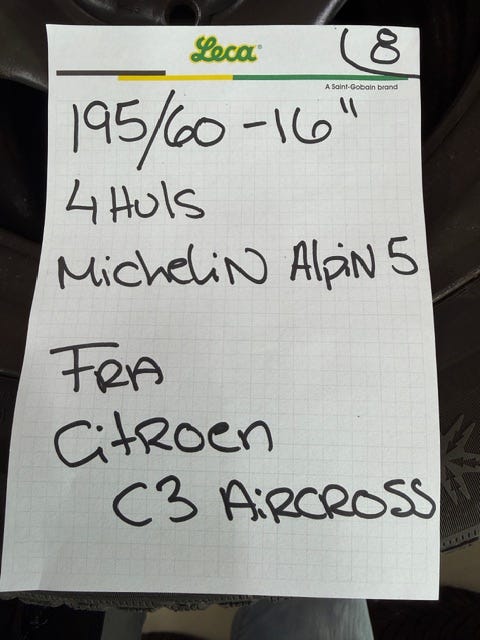 Leca®
8
A Saint-Gobain brand
195/60-16"
4 Huls
Michelin Alpin 5
FRA
Citroen
C3 AiRCROSS